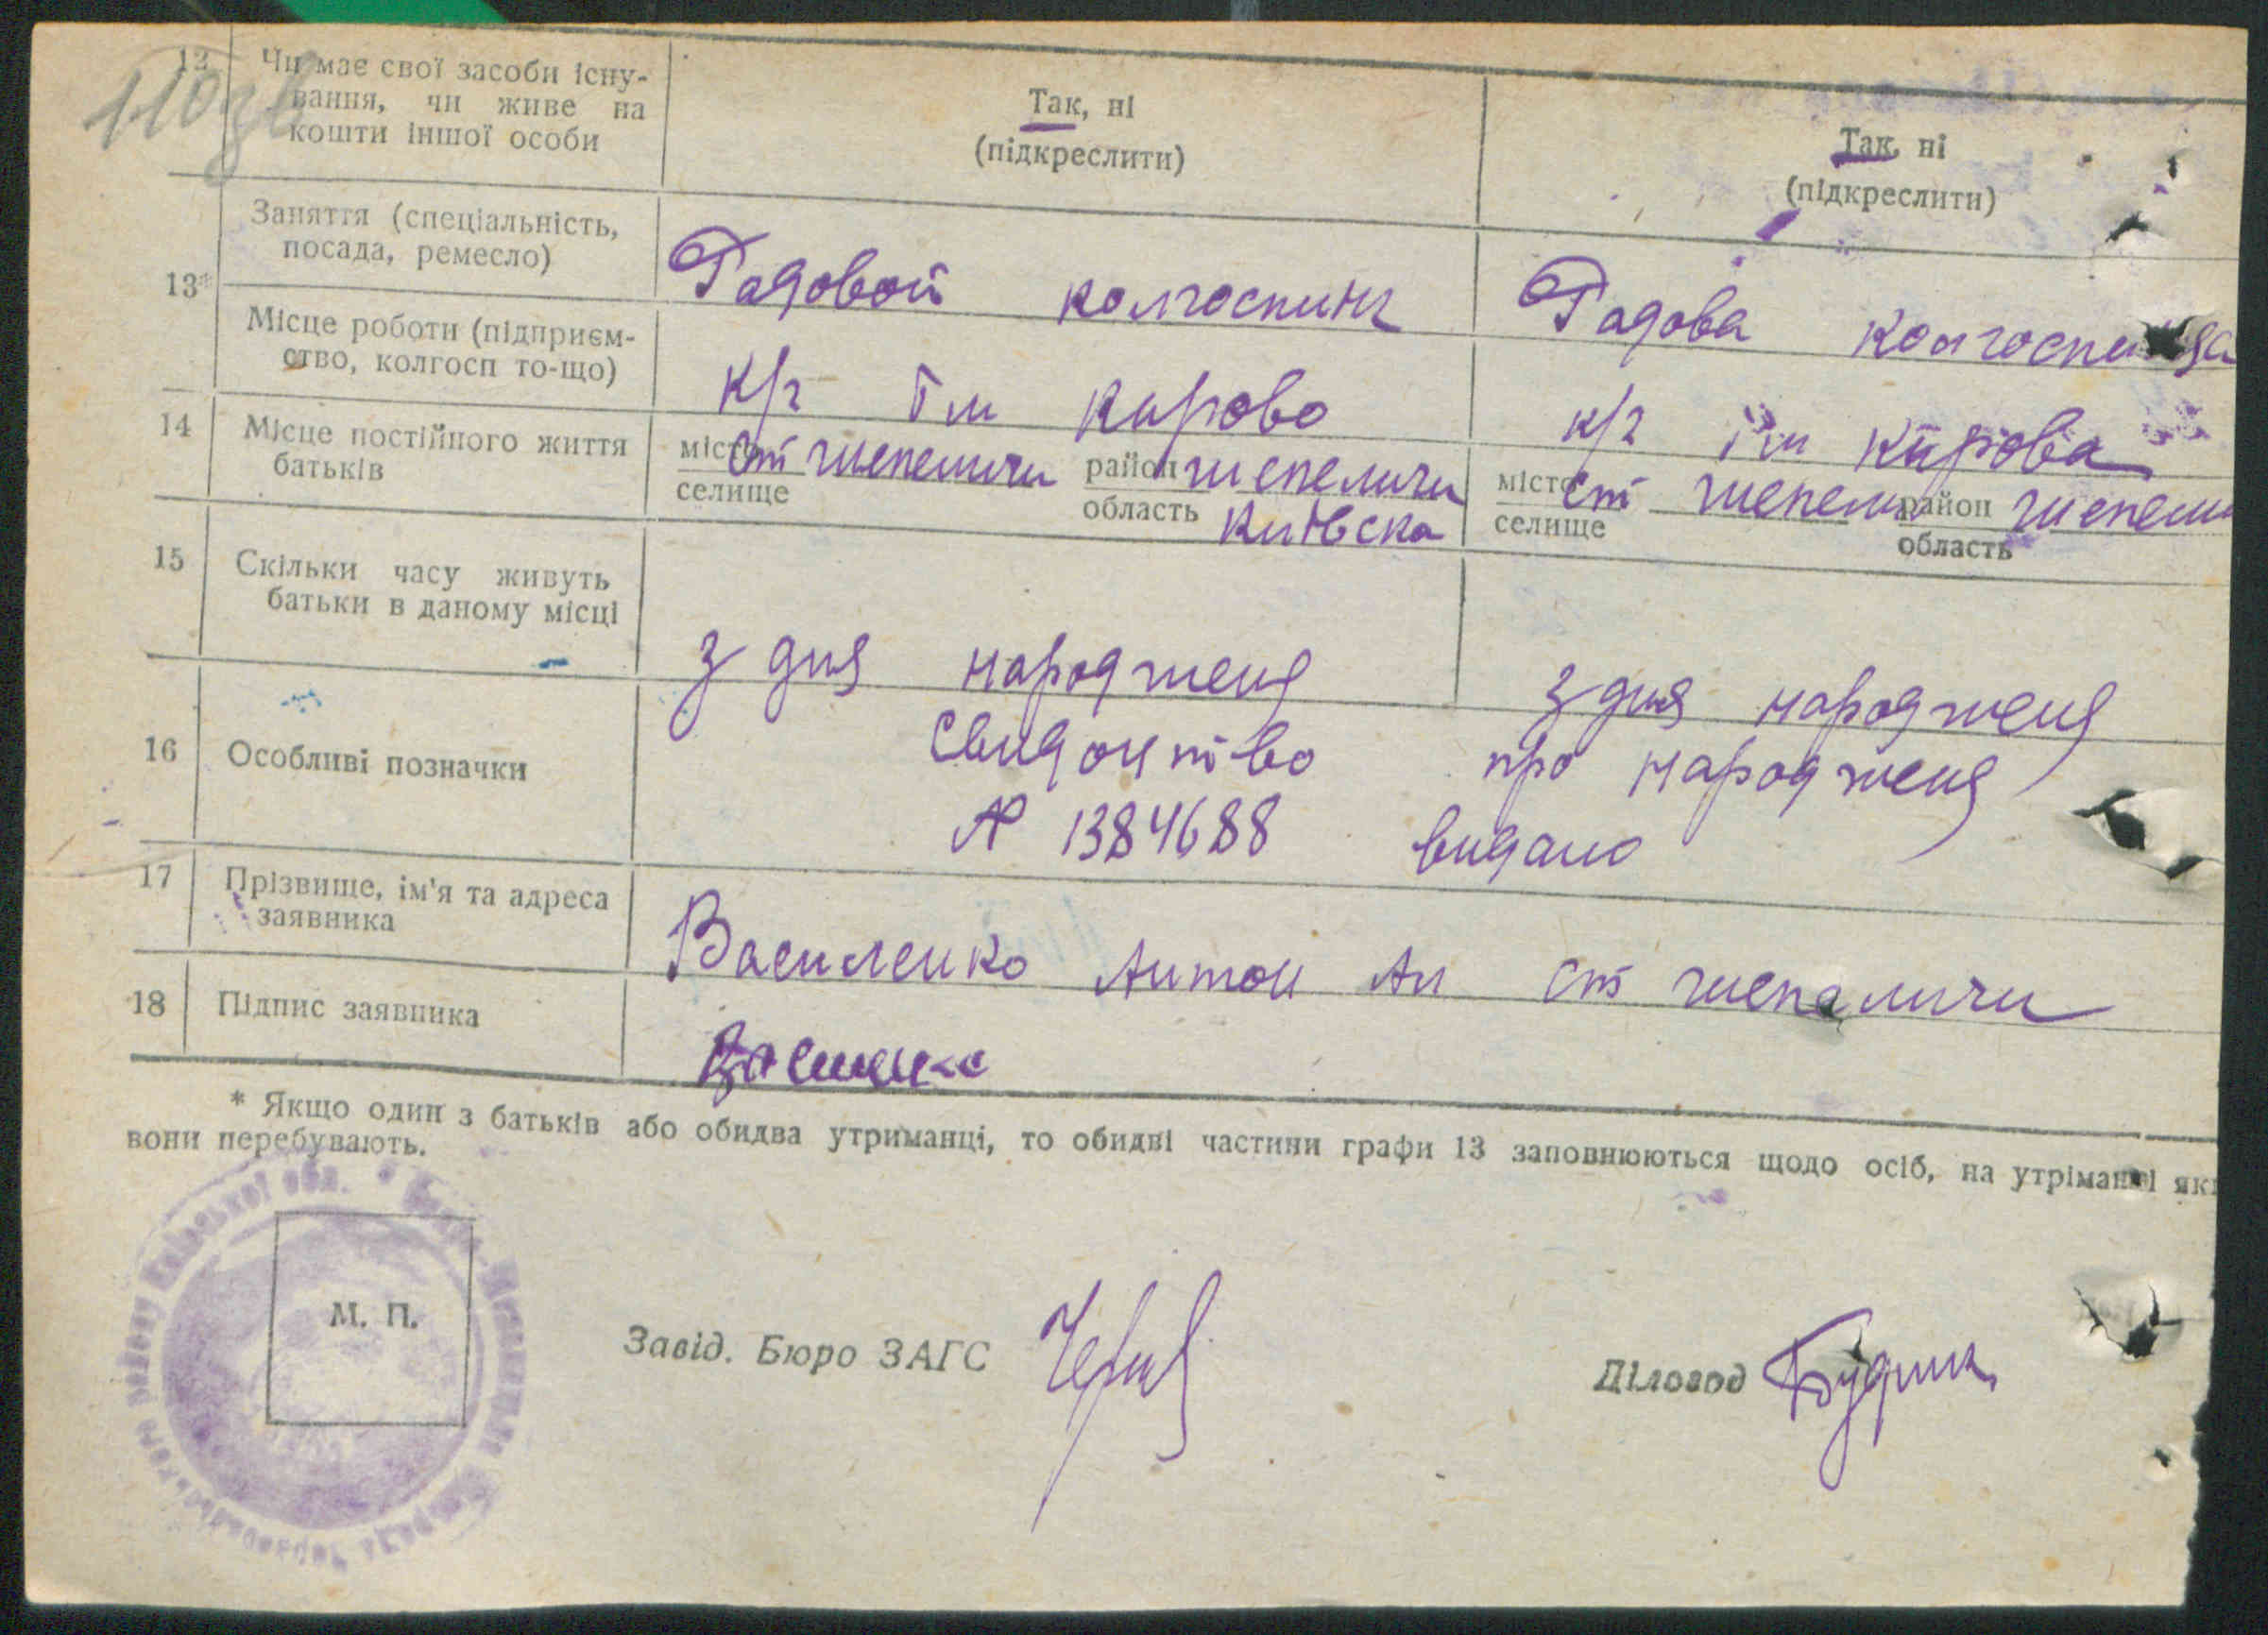 110 зв
12 Чи має свої засоби існу-
вання, чи живе на
кошти іншої особи
Так, ні
(підкреслити)
Так, ні
(підкреслити)
13*
Заняття (спеціальність,
посада, ремесло)
Рядовой колгоспник
Рядова колгоспниця
Місце роботи (підприєм-
ство, колгосп то-що)
к/г Їм Кирово
к/г їм Кирова
14 Місце постійного життя
батьків
місто ст шепеличи район шепеличи
селище область Київска
місто ст шепели район шепели
селище область
15 Скільки часу живуть
батьки в даному місці
з дня народженя
з дня народженя
16 Особливі позначки
Свидоцтво про народженя
№ 1384688 видано
17 Прізвище, ім'я та адреса
заявника
Василенко Антон Ан ст шепеличи
18 Підпис заявника
* Якщо один з батьків або обидва утриманці, то обидві частини графи 13 заповнюються щодо осіб, на утріманні яки
вони перебувають.
М. П.
Завід. Бюро ЗАГС
Діловод